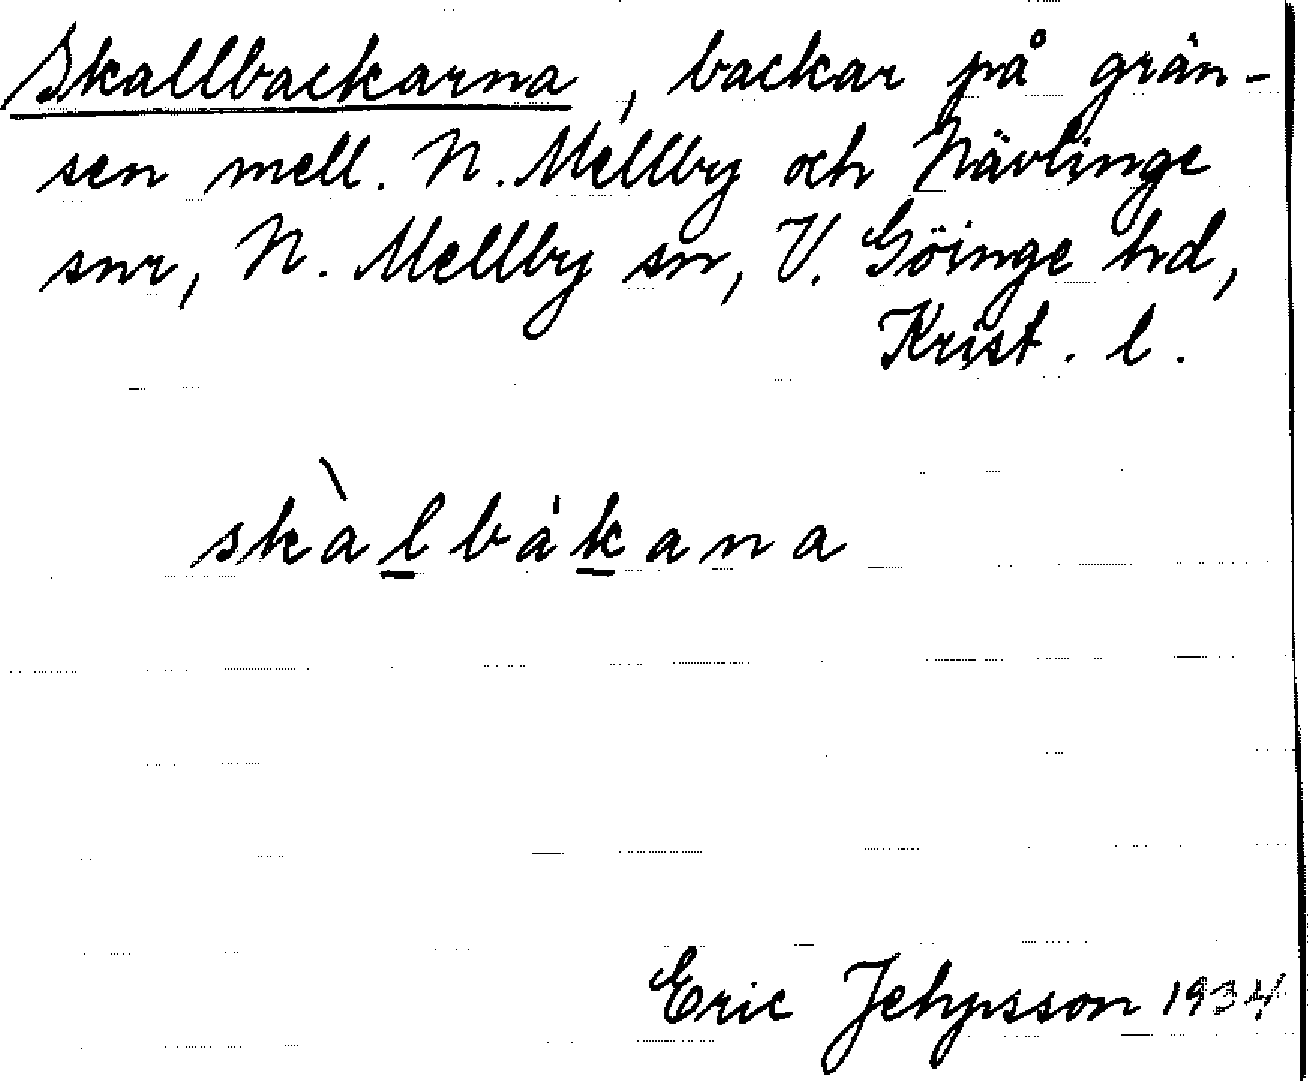 Skallbackarna, backar på grän-
sen mell. N. Mellby och Nävlinge
snr, N. Mellby sn, V. Göinge hd,
Krist. l.
skàl̲bák̲ana
Eric Jehpsson 1934